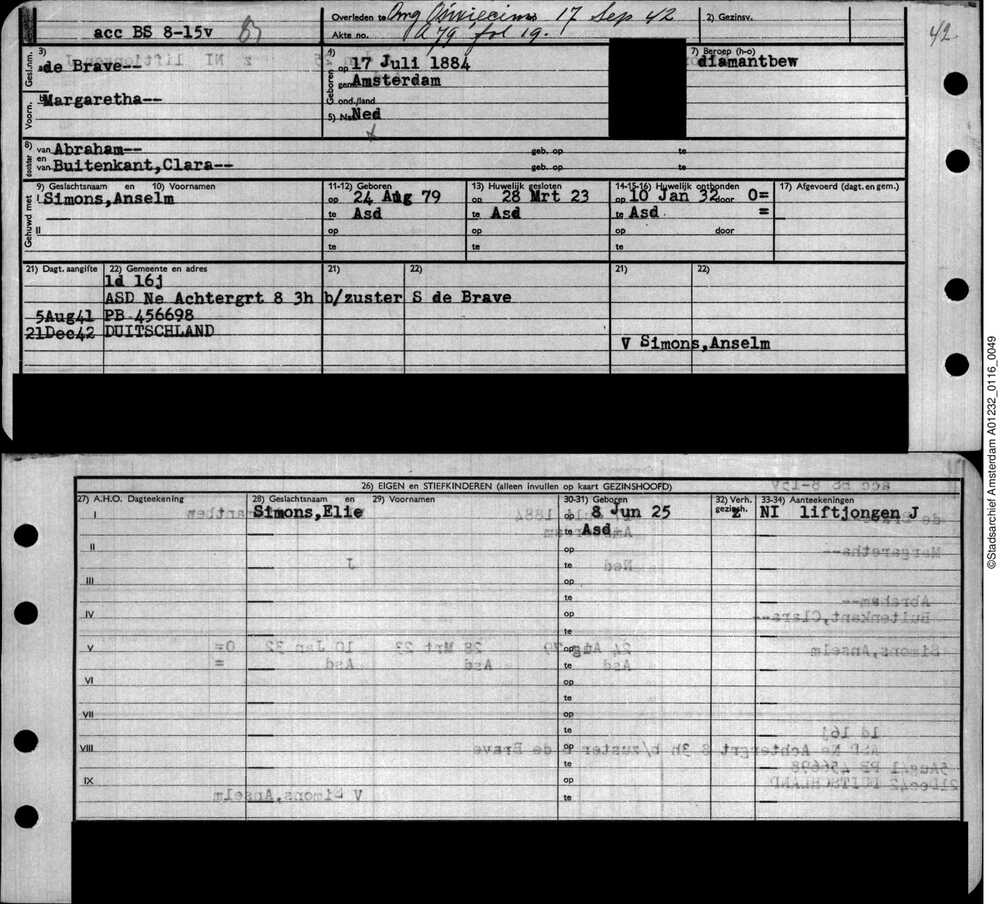 acc BS 8-15v
Overleden te Omg Oświecim 17 Sep 42
Akte no. A 79 fol 19.
2) Gezinsv.
42
3)
Gesl.nm.
de Brave--
Voorn.
Margaretha--
4)
Geboren
op 17 Juli 1884
gem Amsterdam
ond./land
5) Nat Ned
7) Beroep (h-o)
diamantbew
8) van Abraham--
geb. op te
en
van Buitenkant, Clara--
geb. op te
9) Geslachtsnaam en 10) Voornamen
11-12) Geboren
13) Huwelijk gesloten
14-15-16) Huwelijk ontbonden
17) Afgevoerd (dagt. en gem.)
Gehuwd met
I Simons, Anselm
op 24 Aug 79
op 28 Mrt 23
op 10 Jan 32 door O=
te Asd
te Asd
te Asd =
II
op
op
op door
te
te
te
21) Dagt. aangifte
22) Gemeente en adres
21)
22)
21)
22)
ld 16j
ASD Ne Achtergrt 8 3h b/zuster S de Brave
5Aug41 PB 456698
21Dec42 DUITSCHLAND
V Simons, Anselm
26) EIGEN en STIEFKINDEREN (alleen invullen op kaart GEZINSHOOFD)
27) A.H.O. Dagteekening
28) Geslachtsnaam en 29) Voornamen
30-31) Geboren
32) Verh. gezinsh.
33-34) Aanteekeningen
I Simons, Elie op 8 Jun 25 z NI liftjongen J
te Asd
II op
te
III op
te
IV op
te
V op
te
VI op
te
VII op
te
VIII op
te
IX op
te
©Stadsarchief Amsterdam A01232_0116_0049